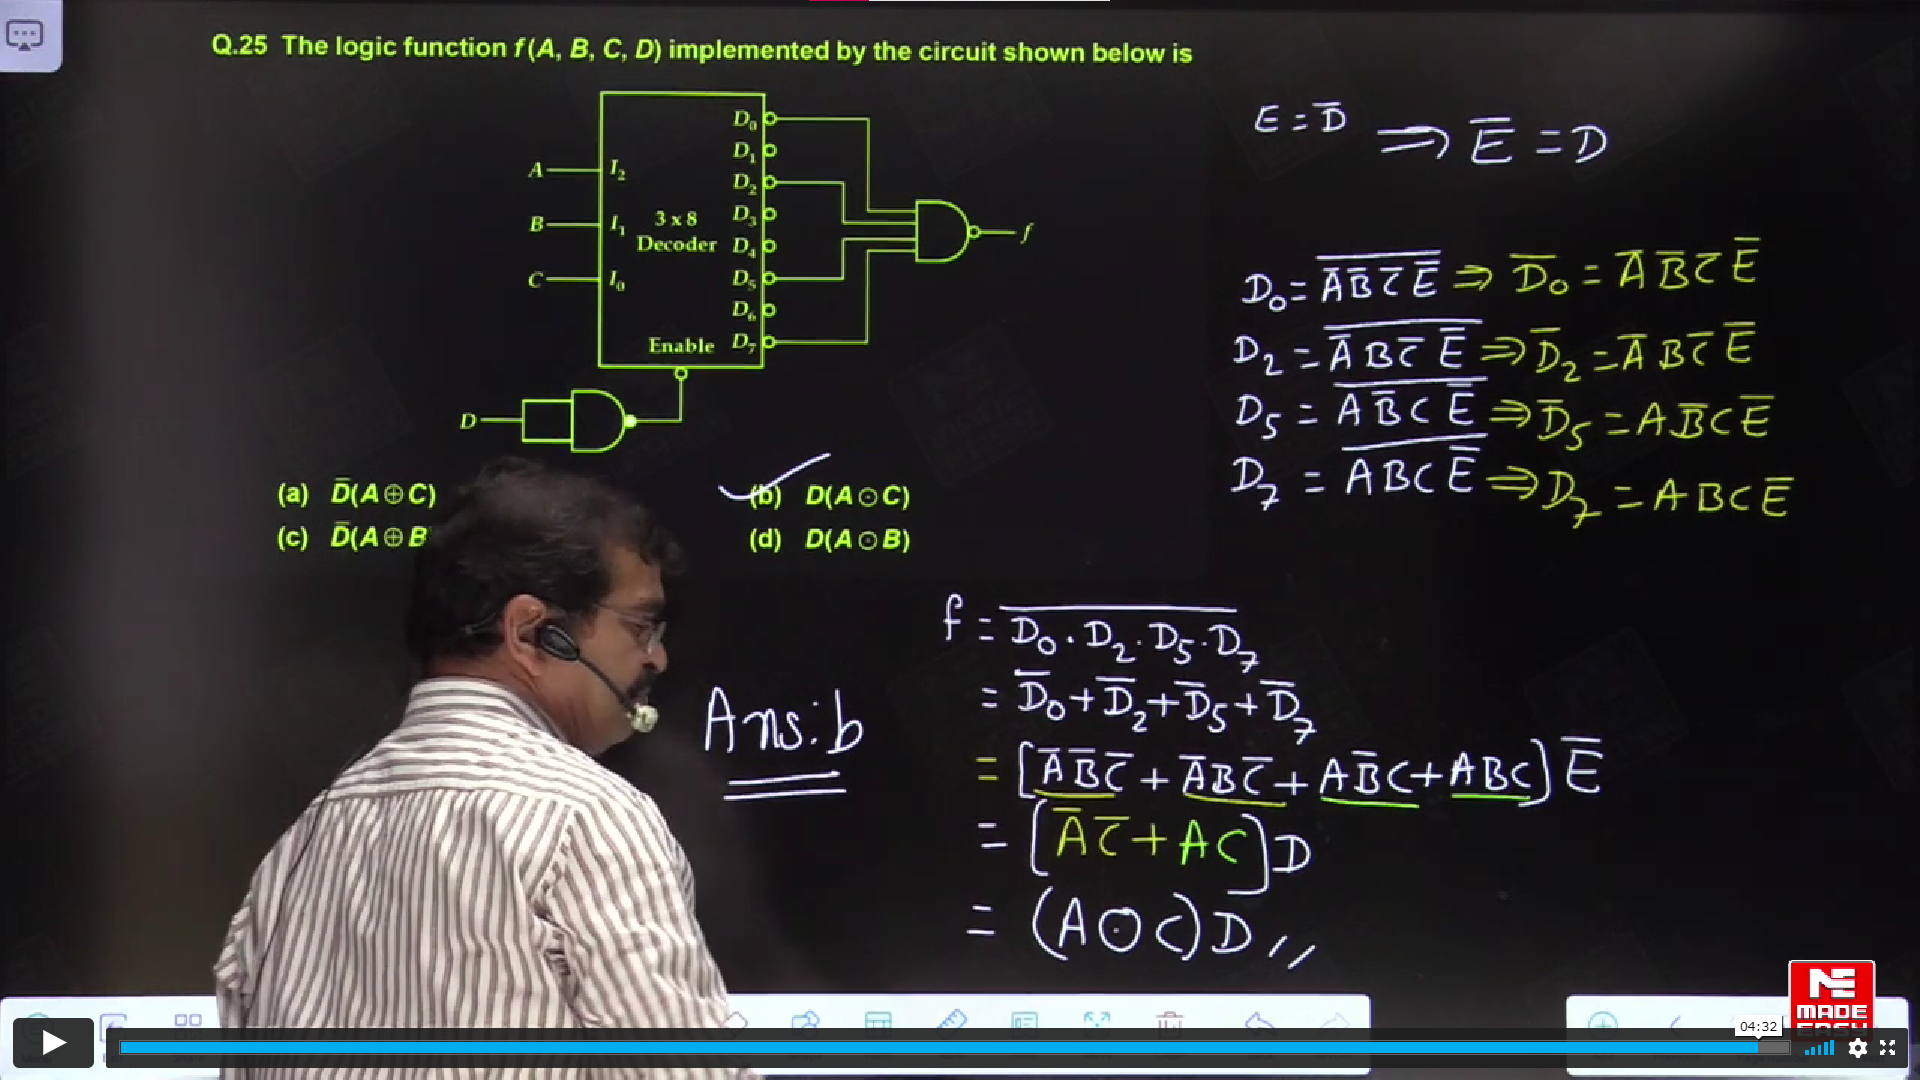 Q.25 The logic function f(A, B, C, D) implemented by the circuit shown below is
D₀
D₁
A I₂ D₂
B I₁ 3 x 8 D₃
Decoder D₄ f
C I₀ D₅
D₆
Enable D₇
D
(a) D̅(A⊕C)
(b) D(A⊙C)
(c) D̅(A⊕B
(d) D(A⊙B)
E = D̅ ⇒ E̅ = D
D₀ = \overline{A̅ B̅ C̅ E̅} ⇒ D̅₀ = A̅ B̅ C̅ E̅
D₂ = \overline{A̅ B C̅ E̅} ⇒ D̅₂ = A̅ B C̅ E̅
D₅ = \overline{A B̅ C E̅} ⇒ D̅₅ = A B̅ C E̅
D₇ = \overline{A B C E̅} ⇒ D₇ = A B C E̅
f = \overline{D₀ . D₂ . D₅ . D₇}
= D̅₀ + D̅₂ + D̅₅ + D̅₇
= [A̅ B̅ C̅ + A̅ B C̅ + A B̅ C + A B C] E̅
= [A̅ C̅ + A C] D
= (A ⊙ C) D //
Ans: b
MADE
EASY
04:32